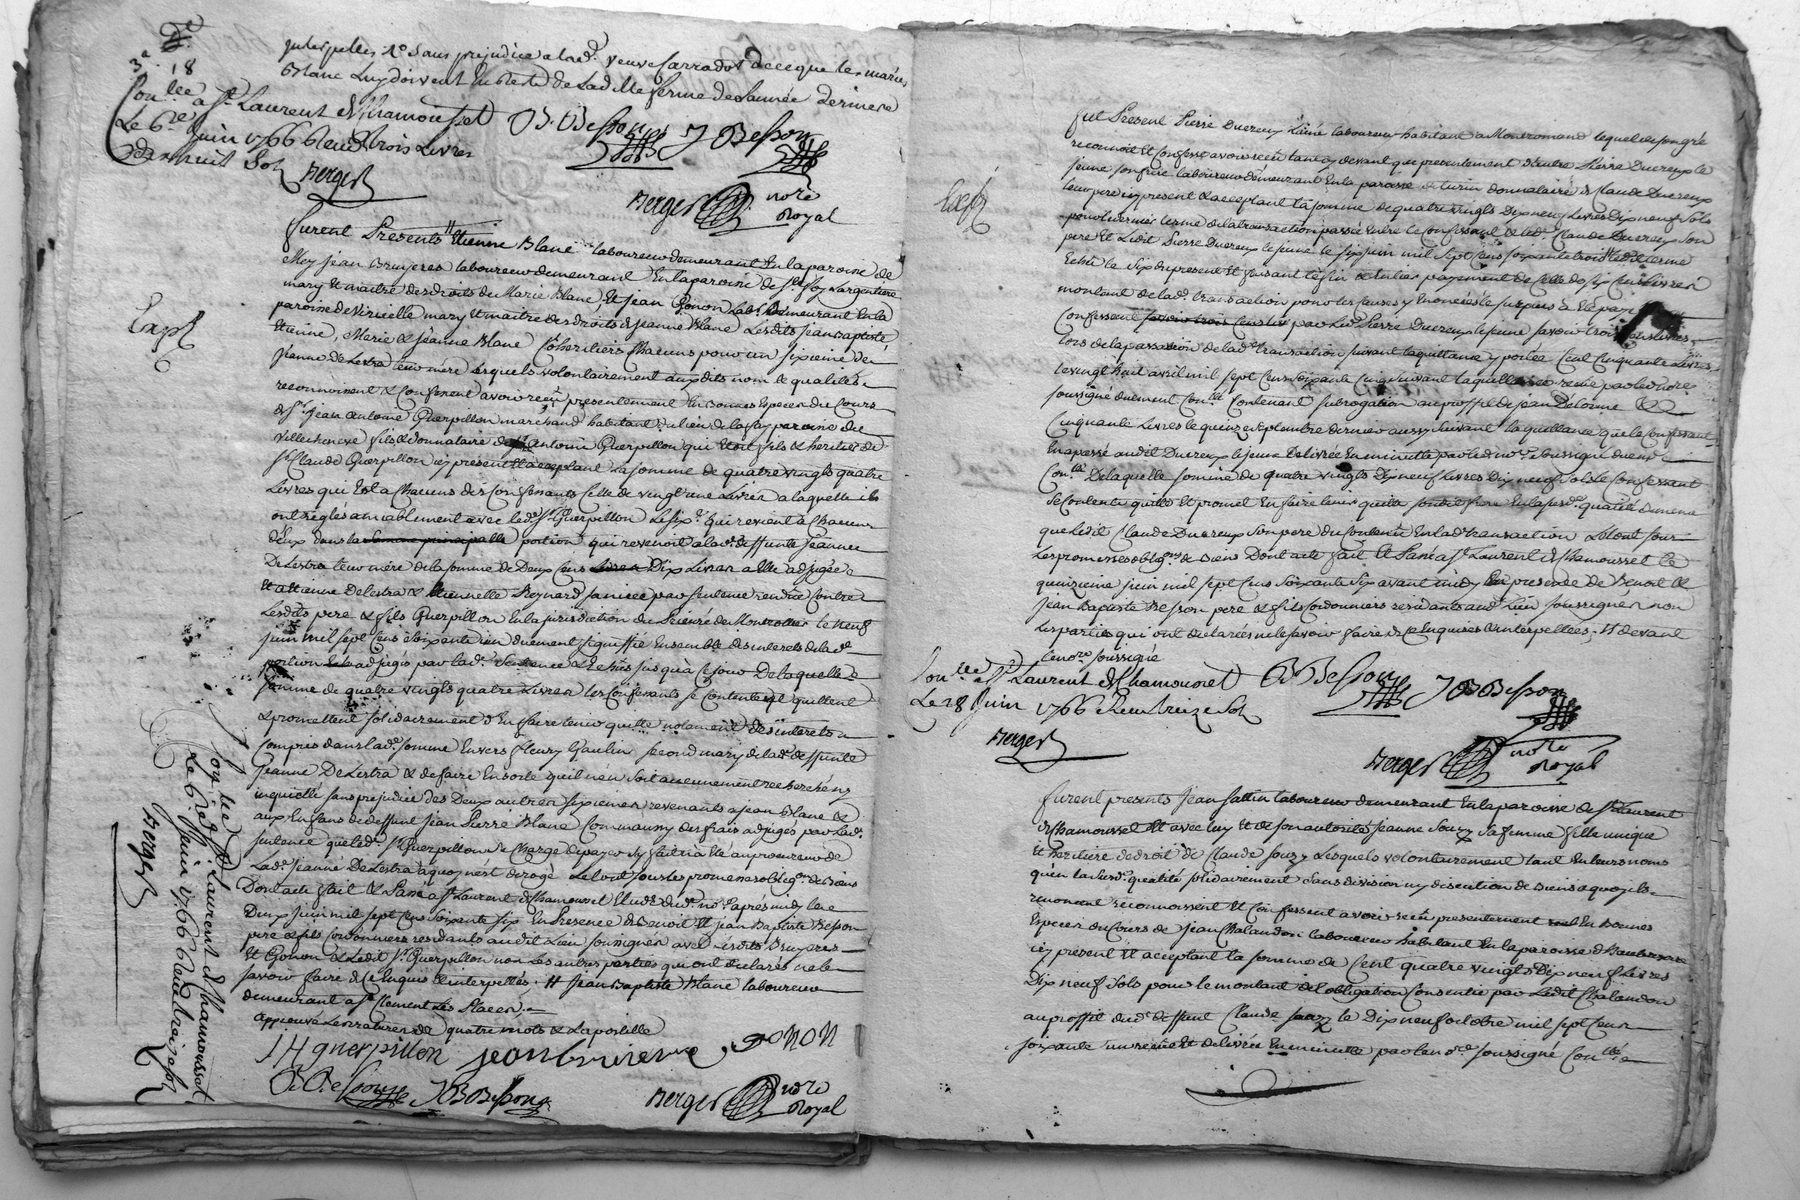 interpellés 1° sans prejudice a lad. veuve Sarradot de ce que les mariés
Blanc luy doivent en reste de lad. ferme de l'année derniere
3# 18
Con.lée a St Laurent d'Chamousset
Le 6e juin 1766 Receu trois Livres
dix huit Sols
Berger
B. Besson J B Besson
Berger nore Royal
furent Presents # Etienne Blanc laboureur demeurant en la paroisse de
Mey jean Bruyeres laboureur demeurant en la paroisse de Ste foy Largentiere
mary et maitre des droits de Marie Blanc, et jean Gonon lab. demeurant en la
paroisse de Viricelle mary et maitre des droits d jeanne Blanc Lesdits jean baptiste
Etienne, Marie & jeanne Blanc Coheritiers chacuns pour un sixieme de
jeanne de Lestra leur mere Lesquels volontairement auxdits nom & qualités
reconnoissent & confessent avoir reçu presentement en bonnes especes du cours
de Sr. jean antoine Querpillon marchand habitant du lieu de paroisse de
Villechenève fils & donnataire de Sr antoine Querpillon qui etoit fils & heritier de
Sr Claude Querpillon icy present & acceptant la somme de quatre vingts quatre
Livres qui est a chacuns des confessants celle de vingt une Livres a laquelle ils
ont réglés amiablement avec led. Sr. Querpillon le six.e qui revient a chacun
d'eux dans la somme principalle portion qui revenoit a lad. deffunte jeanne
De Lestra leur mère de la somme de Deux cens Livres Dix Livres a elle adjugée
et a Etienne Delestra & Etiennette Reynard sa niece par sentence rendüe contre
Lesdits pere & fils Querpillon en la jurisdiction du Prieuré de Montrottier le neuf
juin mil sept cens soixante un duement signiffié Ensemble des interets de lad.
portion adjugés par lad. Sentence & echus jusqu'a ce jour De laquelle
somme de quatre vingts quatre Livres les confessants se contentent quittent
& promettent solidairement d'en faire tenir quitte notament des interets
compris dans lad. somme Envers fleury Gaulin second mary de lad. deffunte
jeanne De Lestra & de faire En sorte qu'il n'en soit aucunement recherché ny
inquiette sans prejudice des Deux autres sixiemes revenants a jean Blanc &
aux Enfans de deffunt jean Pierre Blanc Comm'aussy des frais adjugés par lad.
sentence que led. Sr. Querpillon se charge de payer s'y fait n'a eté au procureur de
Lad. jeanne De Lestra a quoy n'est derogé Le tout sous les promesses oblig.ons de Biens
Dont acte fait & Passé a St Laurent d'Chamousset Etude du d. no.re après midy le
Deux juin mil sept cens soixante six En Presence de Benoit & jean Baptiste Besson
pere & fils Cordonniers residants audit Lieu soussignés avec Lesdits Bruyeres
Et Gonon & Ledit Sr. Querpillon non Les autres parties qui ont declarés ne le
savoir faire de ce Enquis & interpellés. # jean Baptiste Blanc laboureur
demeurant a St Clement Les Places,
approuvé Les ratures de quatre mots & La postille
J A querpillon jean bruiere GONON
B Besson J B Besson Berger nore Royal
Exp.
Con.lée a St Laurent d'Chamousset
Le 6. juin 1766 Receu treize sols
Berger
Exp.
fut Present Pierre Ducreux L'ainé laboureur habitant a Montromand lequel de son gré
reconnoit et confesse avoir reçu tant cy devant que presentement d'autre Pierre Ducreux le
jeune son frere laboureur demeurant en la paroisse de turin donnataire de Claude Ducreux
leur pere icy present & acceptant la somme de quatre vingts Dix neuf Livres Dix neuf Sols
pour le dernier terme de la transaction passée Entre le confessant & led. Claude Ducreux son
pere Et Ledit Pierre Ducreux le jeune le six juin mil sept cens soixante trois ledit terme
Echu le six du present & faisant le fin & l'entier payement de celle de six cens Livres
montant de lad. transaction pour les causes y Enoncées le surplus a eté payé
Confessent savoir trois cens livres par Led. Pierre Ducreux le jeune savoir trois cens Livres
Lors de la passation de lad. transaction suivant la quittance y portée Cent Cinquante Livres
le vingt huit avril mil sept cens soixante cinq suivant la quittance recüe par le nore
soussigné duement con.lée Contenant Subrogation au proffit de jean Delorme &
Cinquante Livres le quinze septembre dernier aussy suivant la quittance que le confessant
En a passé audit Ducreux le jeune delivrée En minutte par led. no.re soussigné duement
Con.lée De laquelle somme de quatre vingts Dix neuf Livres Dix neuf Sols le Confessant
se contente quitte et promet En faire tenir quitte sondit frere En lasusd. qualité de meme
que Ledit Claude Ducreux son pere du contenu En lad. transaction Le tout sous
Les promesses oblig.ons de Biens Dont acte fait & Passé a St Laurent d'Chamousset le
quinzieme juin mil sept cens soixante six avant midy En presence de Benoit &
jean Baptiste Besson pere & fils Cordonniers residants aud. Lieu soussignés non
Les parties qui ont declarés ne le savoir faire de ce Enquises & interpellées. # devant
le no.re soussigné
Con.lée a St Laurent d'Chamousset
Le 28 Juin 1766 Receu treize Sols
Berger
B Besson J B Besson
Berger nore Royal
furent presents jean fattin laboureur demeurant En la paroisse de St Laurent
d'Chamousset Et avec luy Et de son autorité jeanne Souzy sa femme fille unique
& heritiere de droit de Claude Souzy Lesquels volontairement tant En leurs noms
qu'en lasusd. qualité solidairement sans division ny discution de Biens a quoy ils
renoncent reconnoissent Et Confessent avoir reçu presentement en Bonnes
Especes du cours de jean Chalandon laboureur habitant En la paroisse d'
icy present Et acceptant la somme de Cent quatre vingts Dix neuf Livres
Dix neuf Sols pour le montant de l'obligation Consentie par Ledit Chalandon
au proffit dud. deffunt Claude Souzy le Dix neuf octobre mil sept cens
soixante un recüe Et delivrée En minutte par le no.re soussigné Con.lée